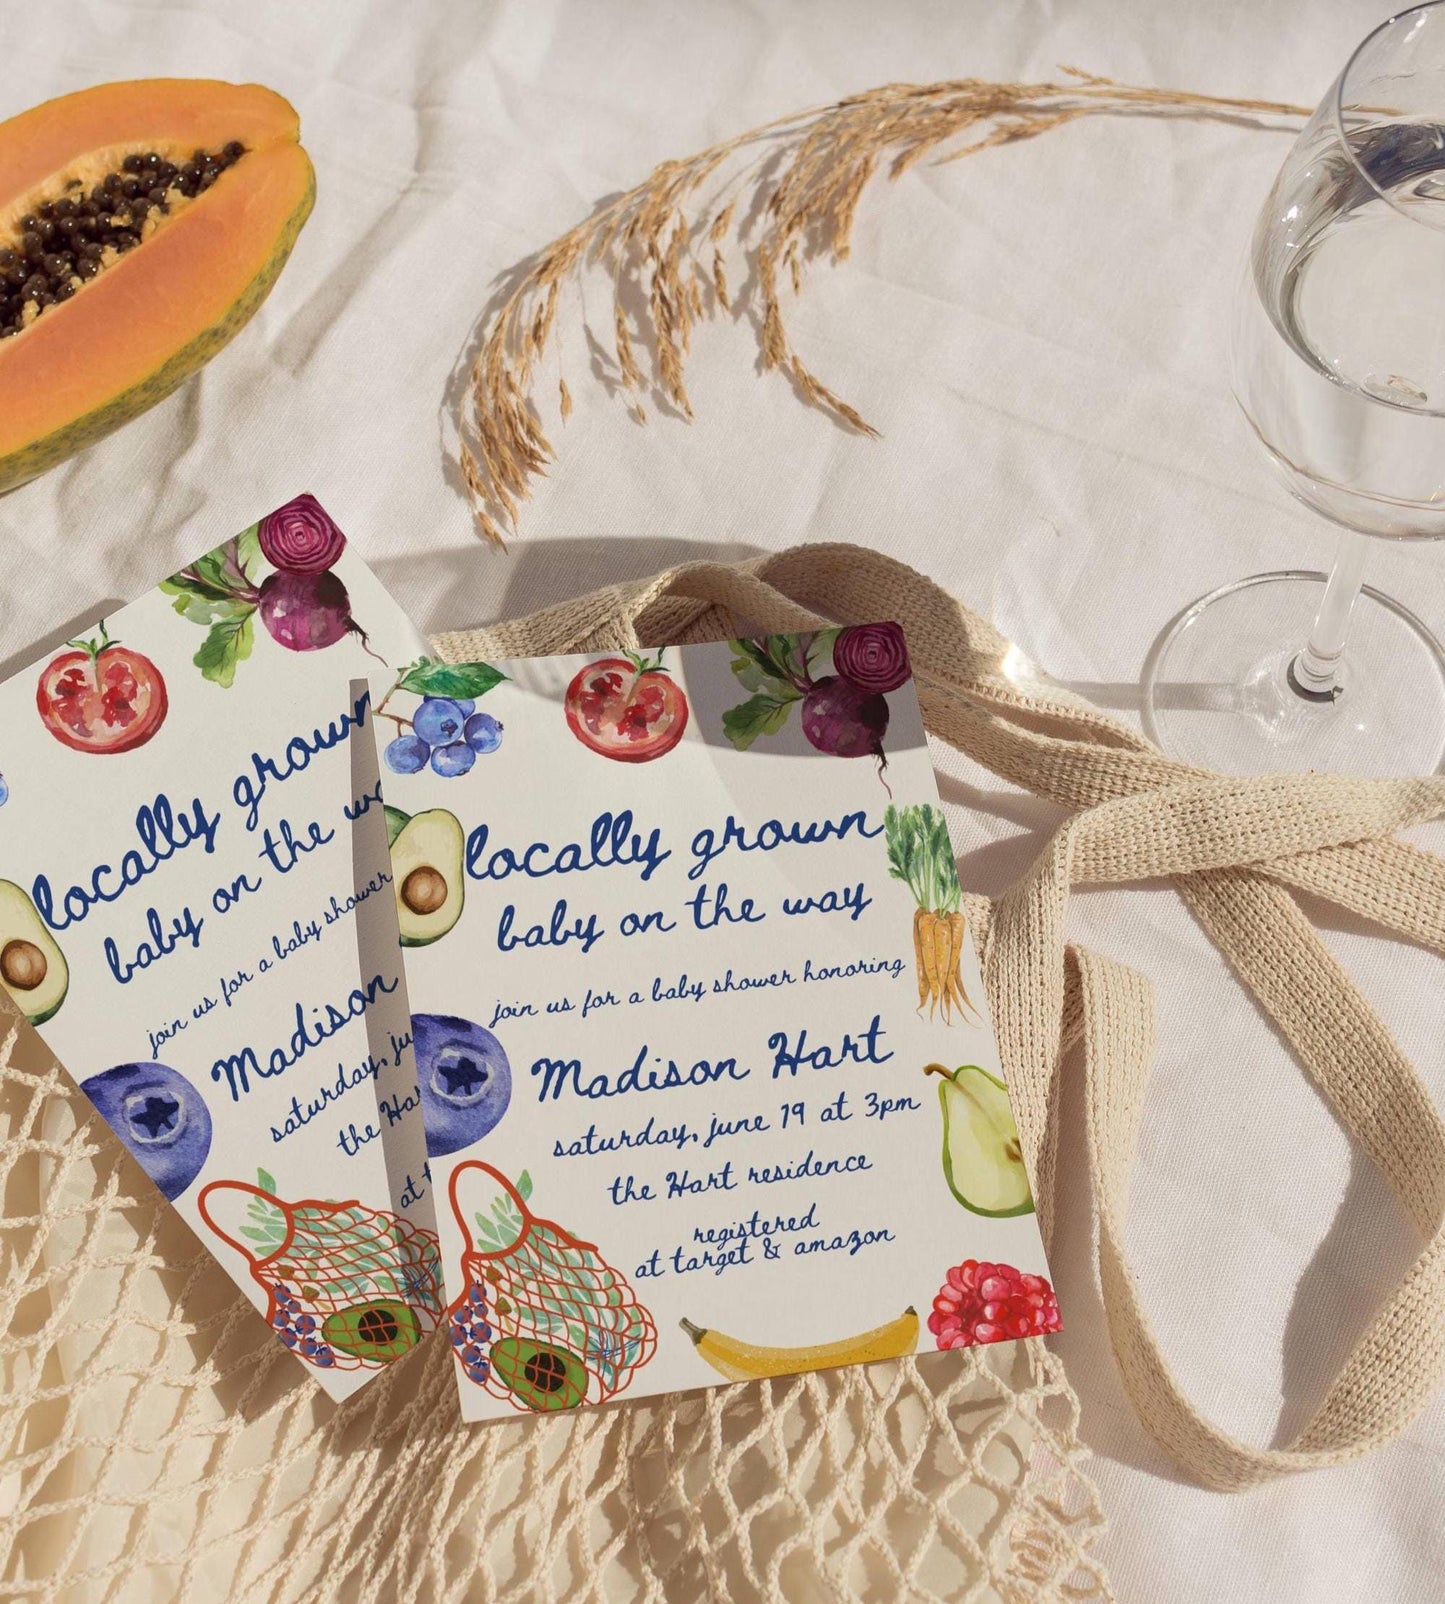 locally grown
baby on the
join us for a baby shower
Madison
saturday,
the
at
locally grown
baby on the way
join us for a baby shower honoring
Madison Hart
saturday, june 19 at 3pm
the Hart residence
registered
at target & amazon